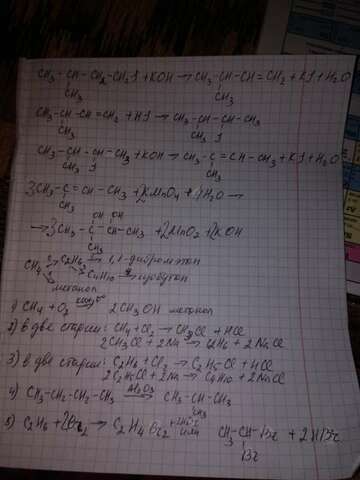 CH3-CH-CH2-CH2I + KOH → CH3-CH-CH=CH2 + KI + H2O
CH3 CH3
CH3-CH-CH=CH2 + HI → CH3-CH-CH-CH3
CH3 CH3 I
CH3-CH-CH-CH3 + KOH → CH3-C=CH-CH3 + KI + H2O
CH3 I CH3
3CH3-C=CH-CH3 + 2KMnO4 + 4H2O →
CH3
OH OH
→ 3CH3-C-CH-CH3 + 2MnO2 + 2KOH
CH3
CH4 C2H6 1,1-дибромэтан
C4H10 изобутан
метанол
1) CH4 + O2 2CH3OH метанол
2) в две стадии: CH4 + Cl2 → CH3Cl + HCl
2CH3Cl + 2Na → C2H6 + 2NaCl
3) в две стадии: C2H6 + Cl2 → C2H5Cl + HCl
2C2H5Cl + 2Na → C4H10 + 2NaCl
4) CH3-CH2-CH2-CH3 Al2O3 → CH3-CH-CH3
CH3
5) C2H6 + 2Br2 → C2H4Br2 + 2HBr или CH3-CH-Br + 2HBr
Br